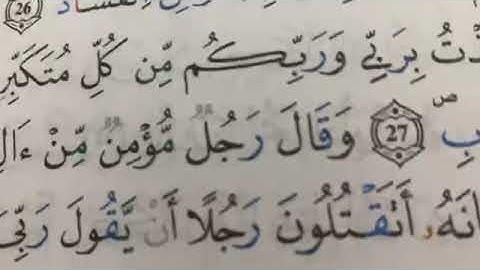 26
ذْتُ بِرَبِّي وَرَبِّكُم مِّن كُلِّ مُتَكَبِّرٍ
بِ 27 وَقَالَ رَجُلٌ مُّؤْمِنٌ مِّنْ ءَالِ
انَهُۥ أَتَقْتُلُونَ رَجُلًا أَنْ يَّقُولَ رَبِّيَ